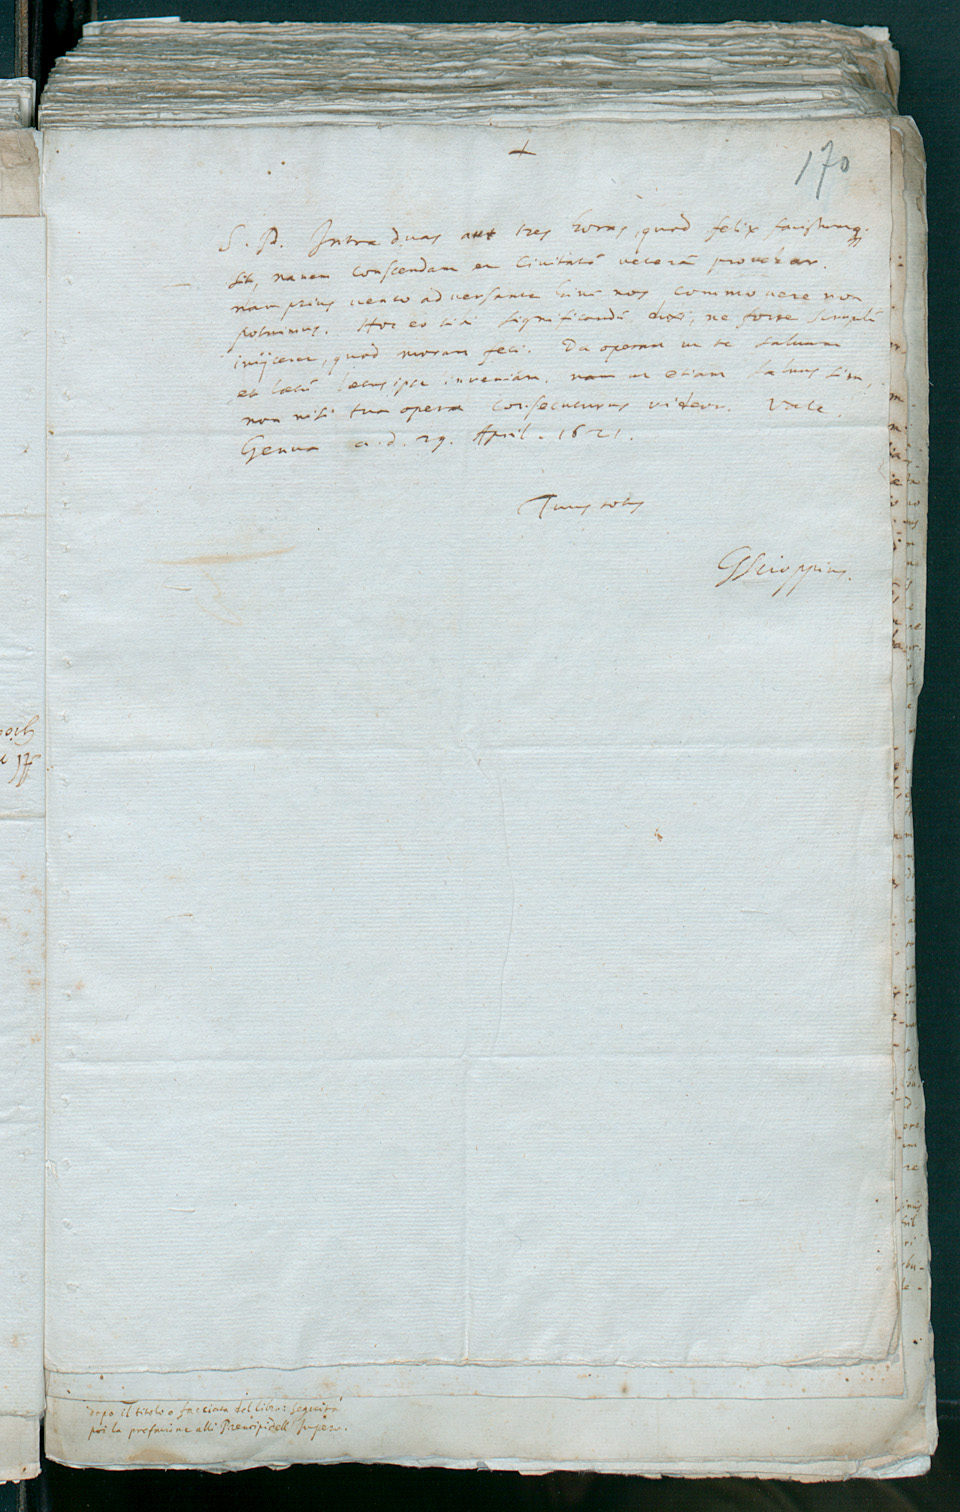 170
S. P. Intra duas aut tres horas, quod felix faustumq.
sit, navem conscendam et Civitatē veterē provehar.
nam prius vento adversante hinc nos commovere non
potuimus. Hoc eo tibi significandū duxi, ne forte scrupulū
iniiceret, quod moram feci. Da operam ut te salvum
et laetū laetus ipse inveniam. nam ut etiam salvus sim,
non nisi tua opera consecuturus videor. Vale
Genua a. d. 29. April. 1621.
Tuus totus
GScioppius.
dopo il titolo o facciata del libro: seguirà
poi la prefatione alli Prencipi dell' Imper.